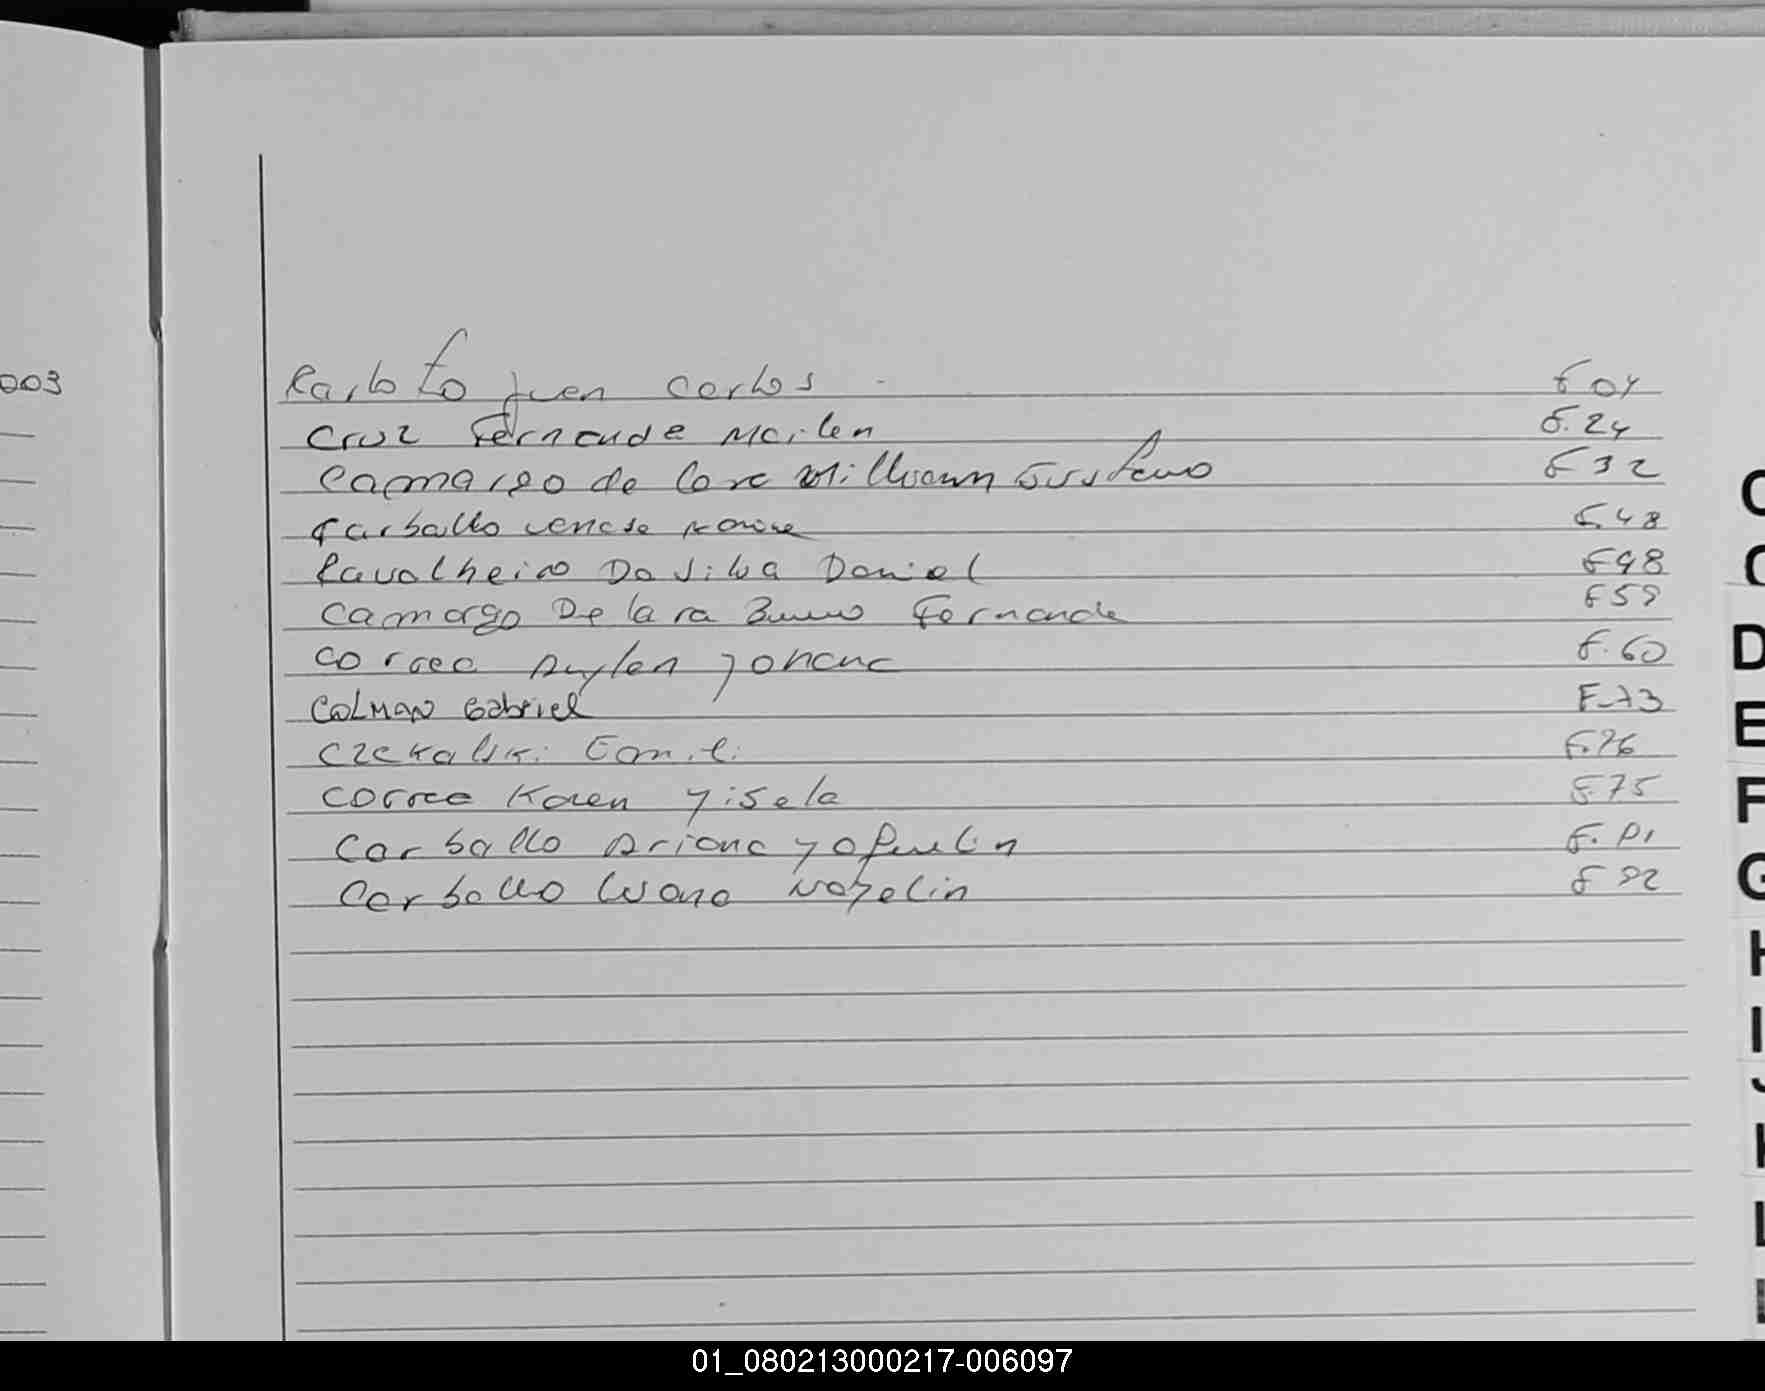 003
Juan Carlos F 04
Cruz Fernande Mailen F. 24
Camargo de Lara Milliann Gustavo F 32
Carballo F. 48
Cavalheiro Da Silva Daniel F 48
Camargo De lara Bruno Fernande F 59
Correa Aylen Johana F. 60
COLMAN Gabriel F-73
Czekalski Emili F. 76
Correa Karen Yisela F. 75
Carballo Ariana Yaquelin F. 81
Carballo Luana Nazelin F 82
C
C
D
E
F
G
H
I
J
K
L
01_080213000217-006097